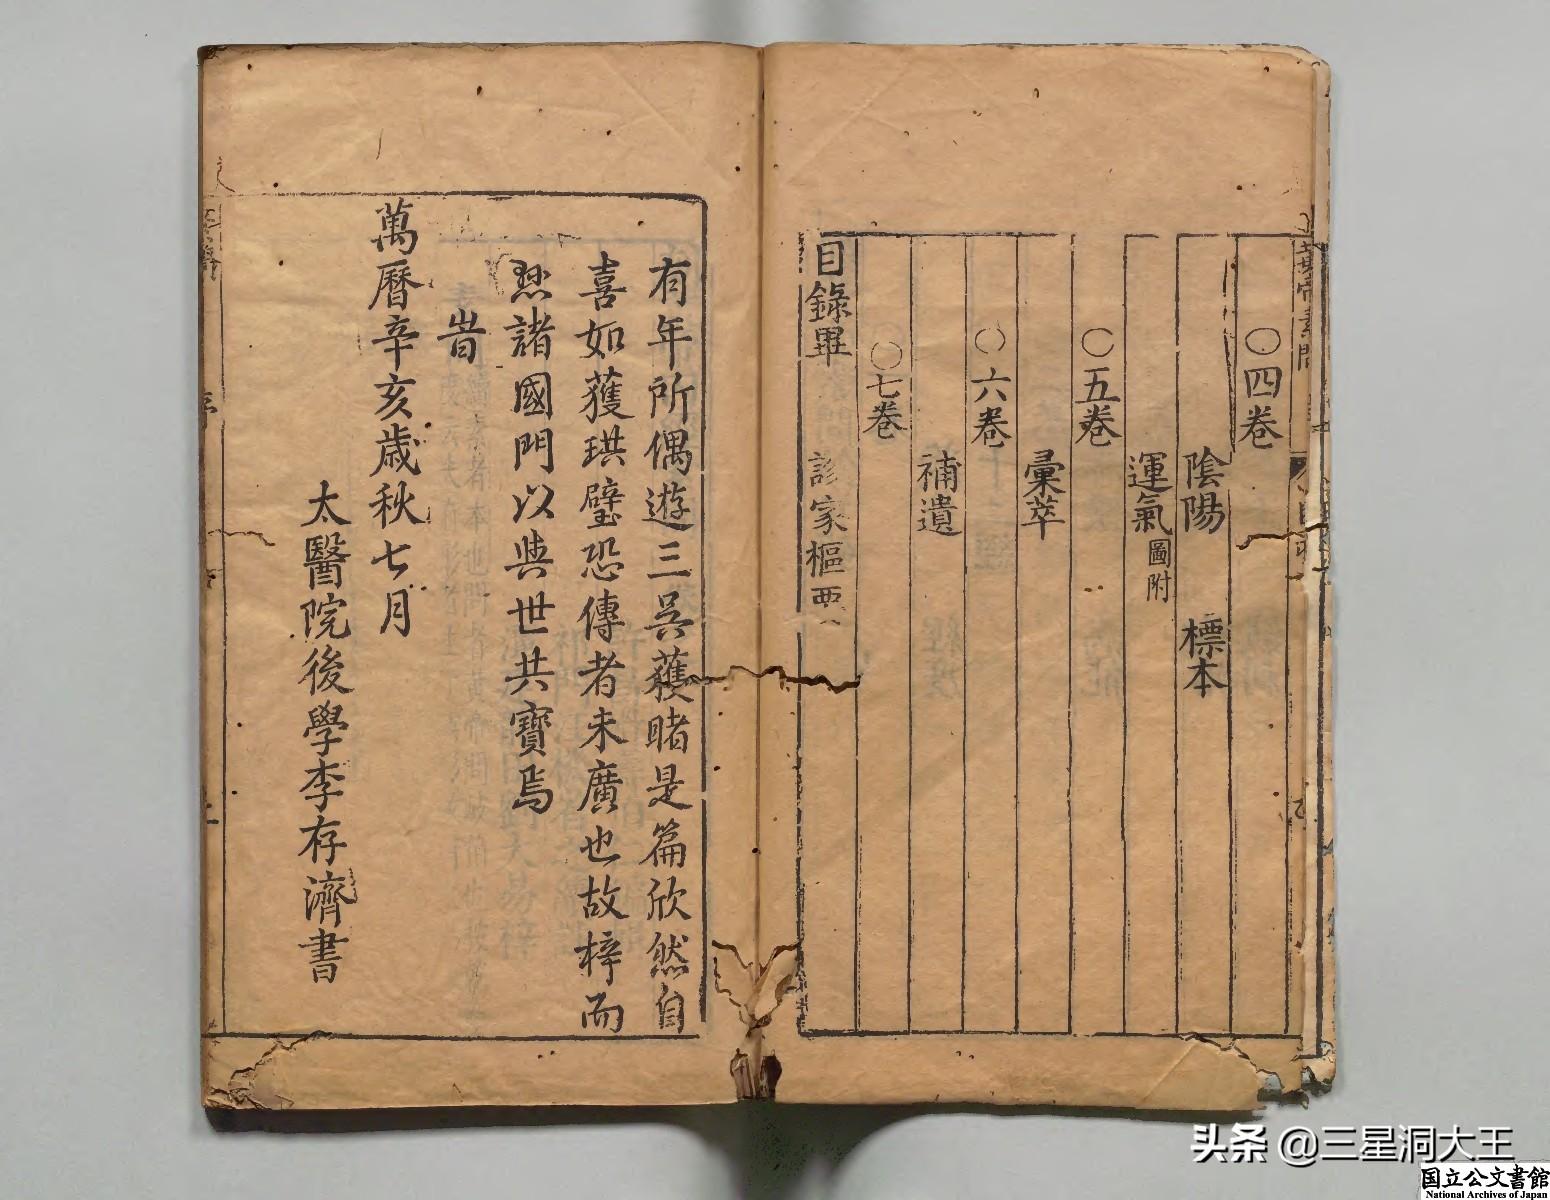 〇四卷
陰陽 標本
運氣圖附
〇五卷
彙萃
〇六卷
補遺
〇七卷
診家樞要
目錄畢
有年所偶遊三吳獲睹是篇欣然自
喜如獲珙璧恐傳者未廣也故梓而
懸諸國門以與世共寶焉
旹
萬曆辛亥歲秋七月
太醫院後學李存濟書
头条 @三星洞大王
国立公文書館
National Archives of Japan